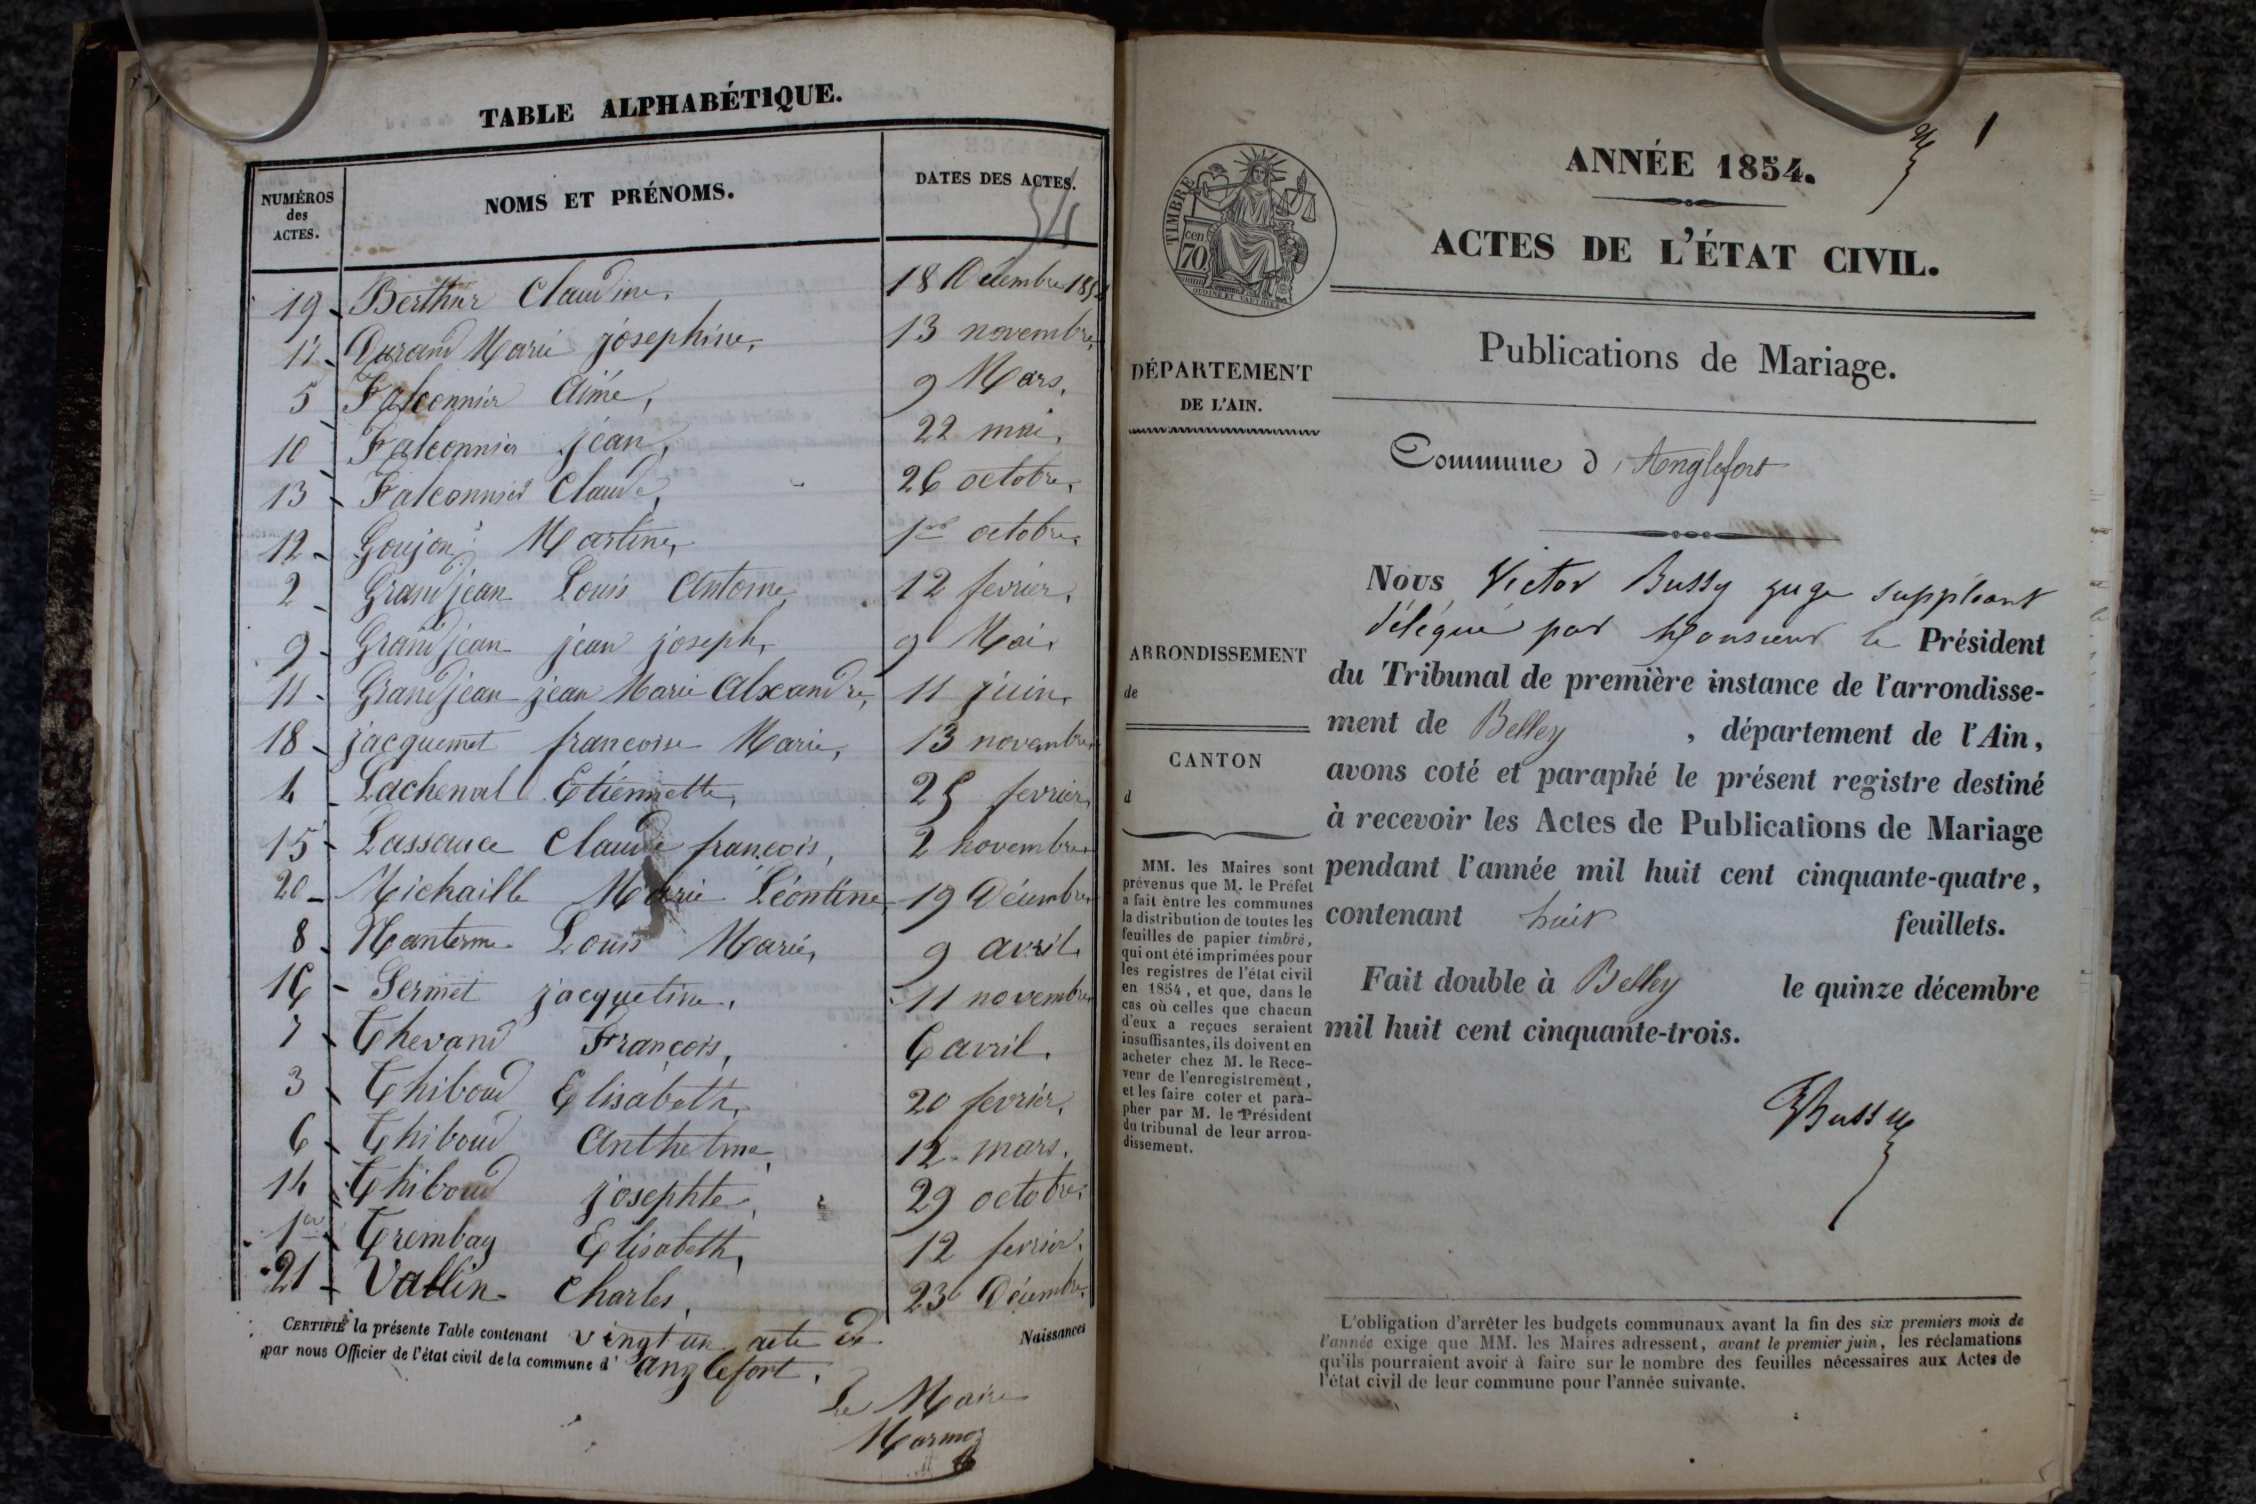 TABLE ALPHABÉTIQUE.
NUMÉROS des ACTES.
NOMS ET PRÉNOMS.
DATES DES ACTES.
54
19 - Berthur Claudine, 18 Décembre 185
17 - Durand Marie joséphine, 13 novembre,
5 Falconnier Aimé, 9 Mars,
10 Falconnier jean, 22 mai,
13 - Falconnier Claude, 26 octobre,
12 - Goujon Martine, 1er octobre,
2 - Grandjean Louis Antoine, 12 fevrier,
9 - Grandjean jean joseph, 9 Mai,
11 - Grandjean jean Marie Alexandre, 11 juin,
18 - jacquemet francoise Marie, 13 novembre,
4 - Lachenal Etiennette, 25 fevrier,
15 - Lassauce Claude francois, 2 novembre,
20 - Michaille Marie Léontine, 19 Décembre,
8 - Manterme Louis Marie, 9 avril,
16 - Sermet jacqueline, 11 novembre,
7 - Thevand François, 6 avril,
3 - Thiboud Elisabeth, 20 fevrier,
6 - Thiboud Anthelme, 12 mars,
14 - Thiboud josephte, 29 octobre,
1er Trembay Elisabeth, 12 fevrier,
21 - Vallin Charles, 23 Décembre,
CERTIFIÉ la présente Table contenant vingt un acte de Naissances
par nous Officier de l'état civil de la commune d' anglefort.
Le Maire
Marmoz
1
ANNÉE 1854.
ACTES DE L'ÉTAT CIVIL.
TIMBRE
cen
70
Publications de Mariage.
DÉPARTEMENT
DE L'AIN.
Commune d'Anglefort
ARRONDISSEMENT
de
CANTON
d
MM. les Maires sont
prévenus que M. le Préfet
a fait entre les communes
la distribution de toutes les
feuilles de papier timbré,
qui ont été imprimées pour
les registres de l'état civil
en 1854, et que, dans le
cas où celles que chacun
d'eux a reçues seraient
insuffisantes, ils doivent en
acheter chez M. le Rece-
veur de l'enregistrement,
et les faire coter et para-
pher par M. le Président
du tribunal de leur arron-
dissement.
Nous Victor Bussy juge suppléant
délégué par Monsieur le Président
du Tribunal de première instance de l'arrondisse-
ment de Belley , département de l'Ain,
avons coté et paraphé le présent registre destiné
à recevoir les Actes de Publications de Mariage
pendant l'année mil huit cent cinquante-quatre,
contenant huit feuillets.
Fait double à Belley le quinze décembre
mil huit cent cinquante-trois.
VBussy
L'obligation d'arrêter les budgets communaux avant la fin des six premiers mois de
l'année exige que MM. les Maires adressent, avant le premier juin, les réclamations
qu'ils pourraient avoir à faire sur le nombre des feuilles nécessaires aux Actes de
l'état civil de leur commune pour l'année suivante.